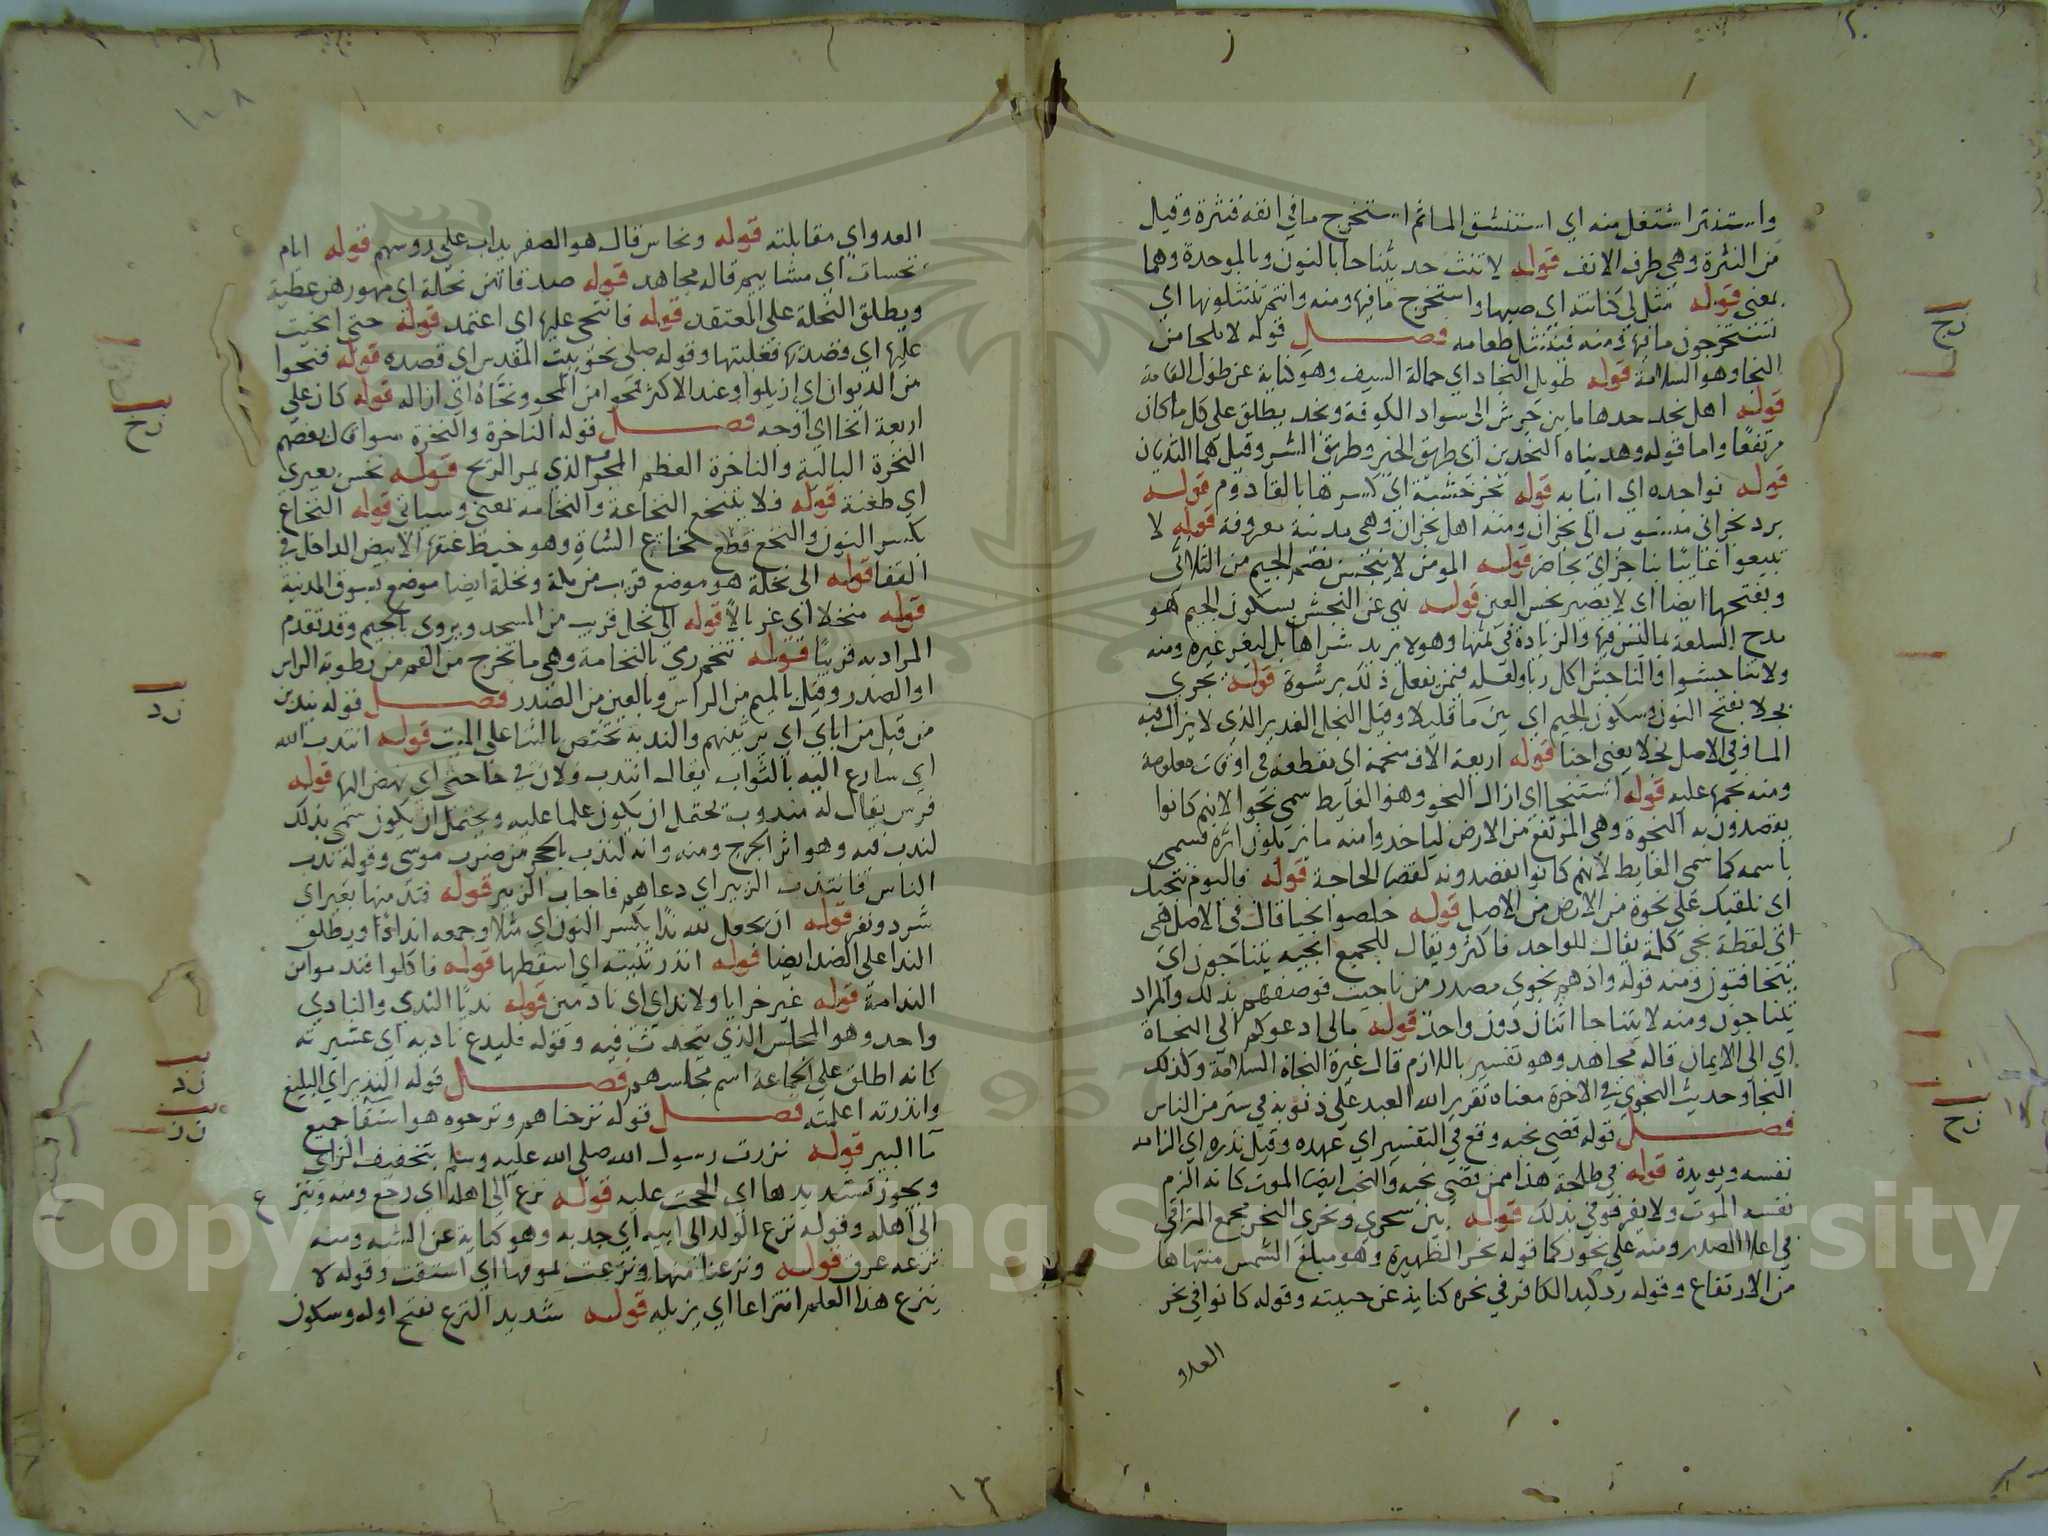 واستنثر اشتغل منه اي استنشق الماثم استخرج ما في انفه فنثرة وقيل
من النثرة وهي طرف الانف قوله لا تنث حديثنا حا بالنون وبالموحدة وهما
بمعنى قوله نثل لي كنانته اي صبها واستخرج ما فيها ومنه وانتم تنتثلونها اي
تستخرجون ما فيها ومنه فينتثل طعامه فصل قوله لا ملجا من
النجا وهو السلامة قوله طويل النجاد اي حمالة السيف وهو كناية عن طول القامة
قوله اهل نجد حدها ما بين جرش الى سواد الكوفة ونجد يطلق على كل ما كان
مرتفعا واما قوله وهديناه النجدين اي طريق الخير وطريق الشر وقيل هما الثديان
قوله نواجذه اي انيابه قوله نجر خشبة اي كسرها بالقادوم قوله
برد نجراني منسوب الى نجران ومنه اهل نجران وهي مدينة معروفة قوله لا
تبيعوا غائبا بناجز اي بحاضر قوله المومن لا ينجس بضم الجيم من الثلاثي
وبفتحها ايضا اي لا يصير نجس العين قوله نهى عن النجش بسكون الجيم هو
مدح السلعة بما ليس فيها والزيادة في ثمنها وهو لا يريد شراها بل ليغر غيره ومنه
ولا تناجشوا والناجش اكل ربا ولعله فيمن يفعل ذلك برشوة قوله يجري
نجلا بفتح النون وسكون الجيم اي بين ما قليلا وقيل النجل الغدير الذي لا يزال فيه
الما وفي الاصل نجلا يعني اجنا قوله اربعة الاف منجمة اي مقطعة في اوقات معلومة
ومنه نجمها عليه قوله استنجا اي ازال النجو وهو الغايط سمي نجوا لانهم كانوا
يقصدون به النجوة وهي المرتفع من الارض لياخذوا منه ما يزيلون اثره فسمي
باسمه كما سمي الغايط لانهم كانوا يقصدونه لقضا الحاجة قوله فاليوم ننجيك
اي نلقيك على نجوة من الارض من الاصل قوله خلصوا نجيا قال في الاصل هي
اي لفظة نجي كلمة يقال للواحد فاكثر ويقال للجميع انجيه يتناجون اي
يتخافتون ومنه قوله واذهم نجوى مصدر من ناجيت فوصفهم بذلك والمراد
يتناجون ومنه لا يتناجا اثنان دون واحد قوله مالي ادعوكم الى النجاة
اي الى الايمان قاله مجاهد وهو تفسير باللازم قال غيره النجاة السلامة وكذلك
النجا وحديث النجوى في الاخرة معناه تقرير الله العبد على ذنوبه في ستر من الناس
فصل قوله قضى نحبه وقع في التفسير اي عهده وقيل نذره اي الزامه
نفسه ويويده قوله في طلحة هذا ممن قضى نحبه والنحب ايضا الموت كانه الزم
نفسه الموت ولا يفر فوفي بذلك قوله بين سحري ونحري النحر مجمع التراقي
في اعلا الصدر ومنه على نحورك كما قوله نحر الظهيرة وهو مبلغ الشمس منتهاها
من الارتفاع وقوله رد كيد الكافر في نحره كناية عن خيبته وقوله كانوا في نحر
العدو
العدو اي مقابلته قوله ونحاس قال هو الصفر يذاب على روسهم قوله ايام
نحسات اي مشاييم قاله مجاهد قوله صدقاتهن نحلة اي مهورهن عطية
ويطلق النحلة على المعتقد قوله فانتحى عليها اي اعتمد قوله حتى انحيت
عليها اي قصدتها فغلبتها وقوله صلى نحو بيت المقدس اي قصده قوله فنحوا
من الديوان اي ازيلوا وعند الاكثر فمحوا من المحو ونحاه اي ازاله قوله كان على
اربعة انحا اي اوجه فصل قوله الناخرة والنخرة سوا قال بعضهم
النخرة البالية والناخرة العظم المجوف الذي يمر الريح قوله نخس بعيري
اي طعنه قوله فلا يتنخع النخاعة والنخامة بمعنى وسياتي قوله النخاع
بكسر النون والنخع قطع نخاع الشاة وهو خيط عنقها الابيض الداخل في
القفا قوله الى نخلة هو موضع قريب من مكة ونخلة ايضا موضع بسوق المدينة
قوله منخلا اي غربالا قوله الى نخل قريب من المسجد ويروى بالجيم وقد تقدم
المراد به قريبا قوله تنخم رمي بالنخامة وهي ما تخرج من الفم من رطوبة الراس
او الصدر وقيل بالميم من الراس وبالعين من الصدر فصل قوله يندبن
من قتل من اباي اي يرثينهم والندبة تختص بالثنا على الميت قوله انتدب الله
اي سارع اليه بالثواب يقال انتدب فلان في حاجتي اي نهض اليها قوله
فرس يقال له مندوب يحتمل ان يكون علما عليه ويحتمل ان يكون سمي بذلك
لندب فيه وهو اثر الجرح ومنه وانه لندب بالحجر من ضرب موسى وقوله ندب
الناس فانتدب الزبير اي دعاهم فاجاب الزبير قوله فند منها بعير اي
شرد ونفر قوله ان يجعل لله ندا بكسر النون اي مثلا وجمعه اندادا ويطلق
الند على الضد ايضا قوله اندر ثنيته اي اسقطها قوله فاكلوا فندموا من
الندامة قوله غير خزايا ولا ندامى اي نادمين قوله نديا الندي والنادي
واحد وهو المجلس الذي يتحدث فيه وقوله فليدع ناديه اي عشيرته
كانه اطلق على الجماعة اسم مجلسهم فصل قوله النذير اي البليغ
وانذرته اعلمته فصل قوله نزحناهم ونزحوه هو استقا جميع
ما البير قوله نزرت رسول الله صلى الله عليه وسلم بتخفيف الزاي
ويجوز تشديدها اي الححت عليه قوله نزع الى اهله اي رجع ومنه ونزع
الى اهله وقوله نزع الولد الى ابيه اي جذبه وهو كناية عن الشبه ومنه
نزعه عرق قوله ونزعنا منها ونزعت بموقها اي استقت وقوله لا
ينزع هذا العلم انتزاعا اي يزيله قوله شديد النزع بفتح اوله وسكون
نج
نح
نخ
ند
ند
نز
١٠٨
Copyright © King Saud University
1957